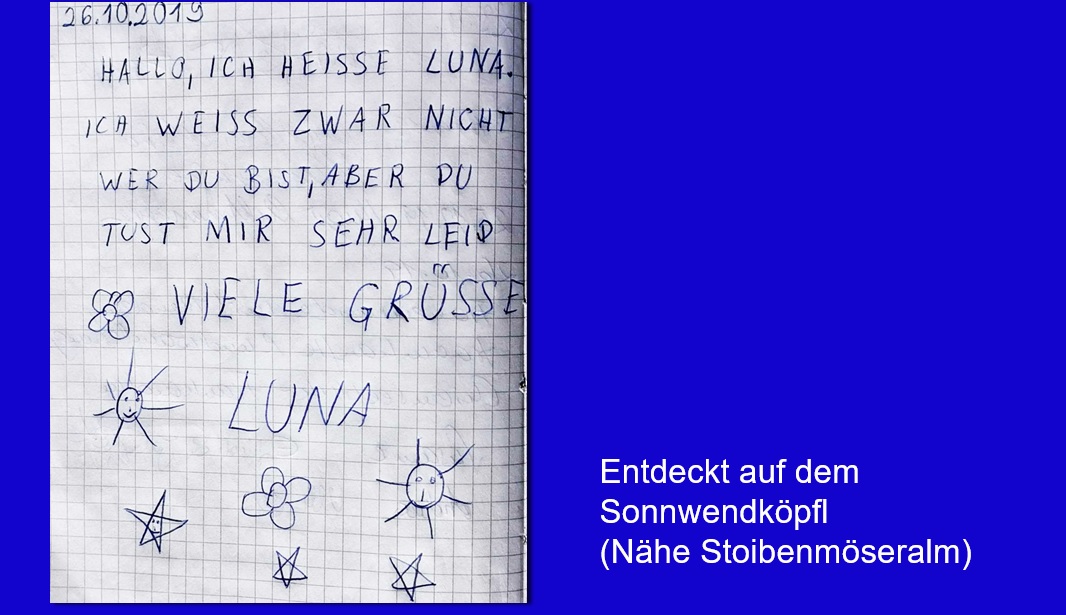 26.10.2019
HALLO, ICH HEISSE LUNA.
ICH WEISS ZWAR NICHT
WER DU BIST, ABER DU
TUST MIR SEHR LEID
VIELE GRÜSSE
LUNA
Entdeckt auf dem
Sonnwendköpfl
(Nähe Stoibenmöseralm)